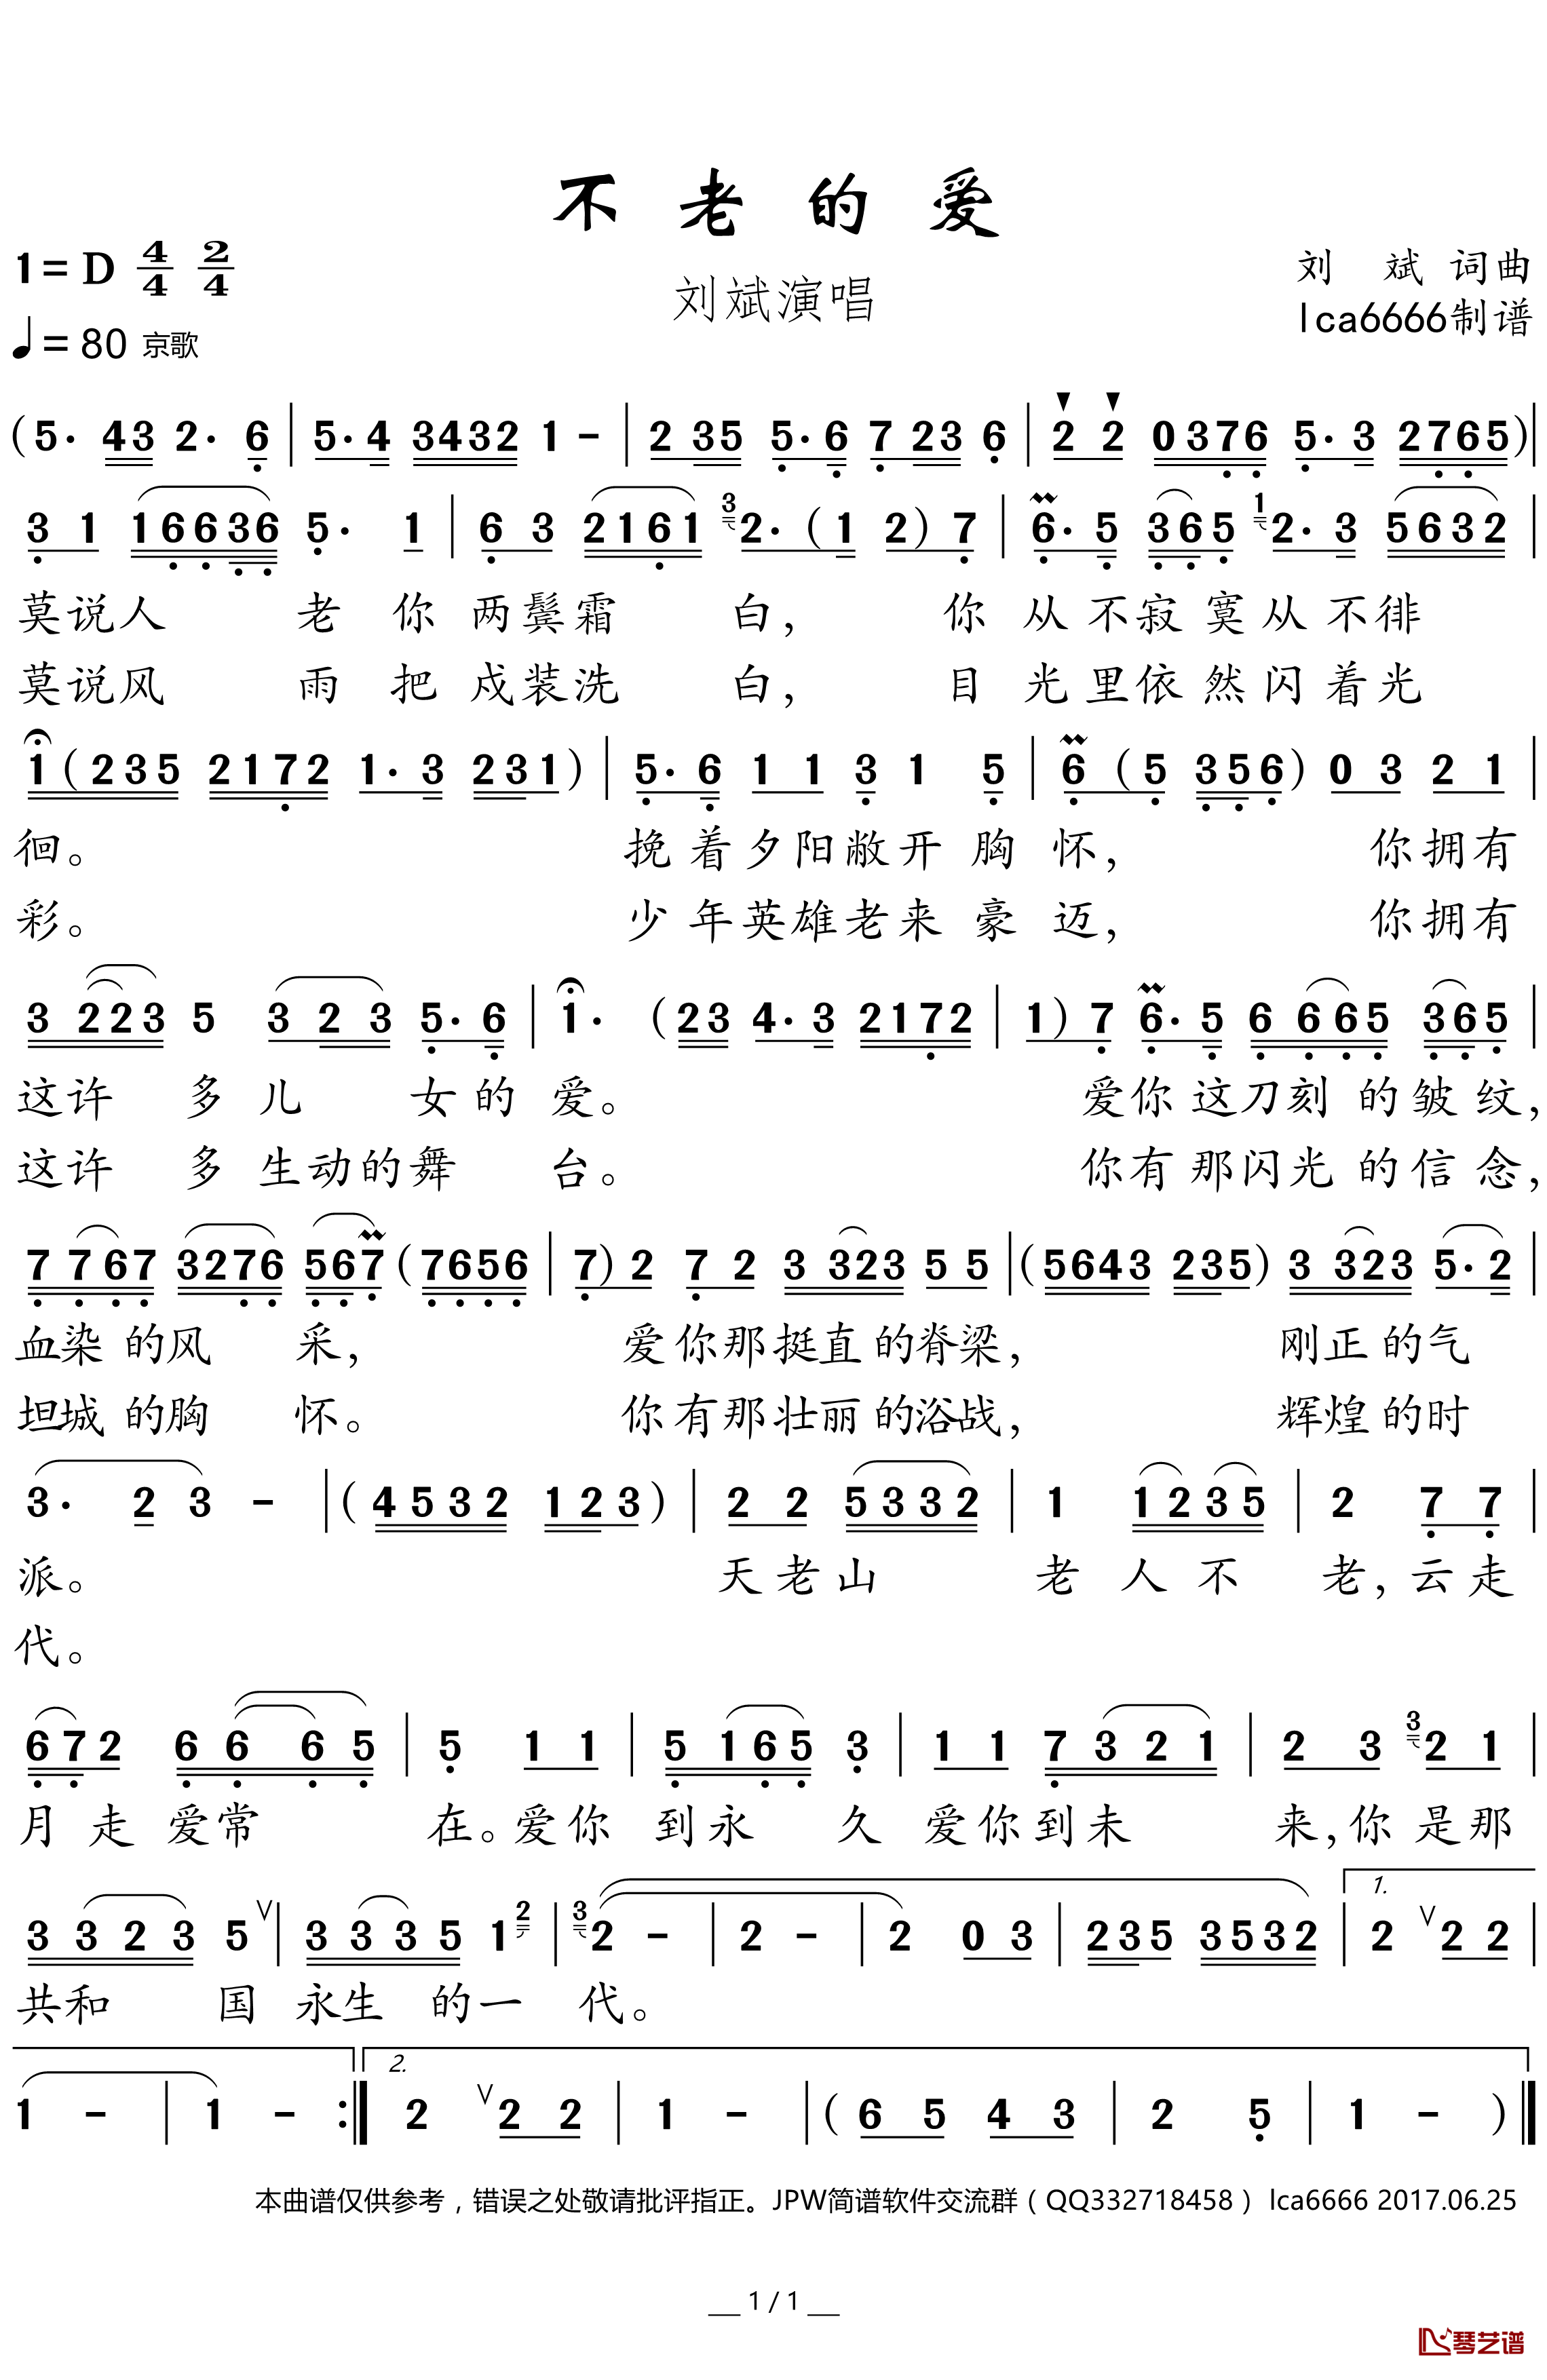 不老的爱
1=D 4/4 2/4
刘斌演唱
刘 斌 词曲
lca6666制谱
♩=80 京歌
(5. 43 2. 6 | 5.4 3432 1 - | 2 35 5.6 7 23 6 | 2 2 0376 5.3 2765)|
3 1 16636 5. 1 | 6 3 2161 3 2.(1 2)7 | 6.5 365 1 2.3 5632 |
莫说人 老 你 两鬓霜 白, 你 从不寂寞从不徘
莫说风 雨 把 戍装洗 白, 目 光里依然闪着光
1(235 2172 1.3 231) | 5.6 1 1 3 1 5 | 6(5 356) 0 3 2 1 |
徊。 挽着夕阳敝开胸 怀, 你拥有
彩。 少年英雄老来豪 迈, 你拥有
3 223 5 3 2 3 5.6 | 1. (23 4.3 2172 | 1)7 6.5 6 665 365 |
这许 多 儿 女的 爱。 爱你这刀刻的皱纹,
这许 多 生动的舞 台。 你有那闪光的信念,
7 767 3276 567(7656 | 7)2 7 2 3 323 5 5 |(5643 235) 3 323 5.2 |
血染的风 采, 爱你那挺直的脊梁, 刚正的气
坦城的胸 怀。 你有那壮丽的浴战, 辉煌的时
3. 2 3 - |(4532 123)| 2 2 5332 | 1 1235 | 2 7 7 |
派。 天老山 老人不 老,云走
代。
672 6 6 6 5 | 5 1 1 | 5 165 3 | 1 1 7321 | 2 3 3 2 1 |
月走爱常 在。爱你 到永 久 爱你到未 来,你是那
3 323 5 V | 3 335 1 2 | 3 2 - | 2 - | 2 0 3 | 235 3532 | 1. 2 V 2 2 |
共和 国 永生 的一 代。
1 - | 1 - :| 2. 2 V 2 2 | 1 - |(6 5 4 3 | 2 5 | 1 - )|
本曲谱仅供参考，错误之处敬请批评指正。JPW简谱软件交流群（QQ332718458） lca6666 2017.06.25
1 / 1
琴艺谱